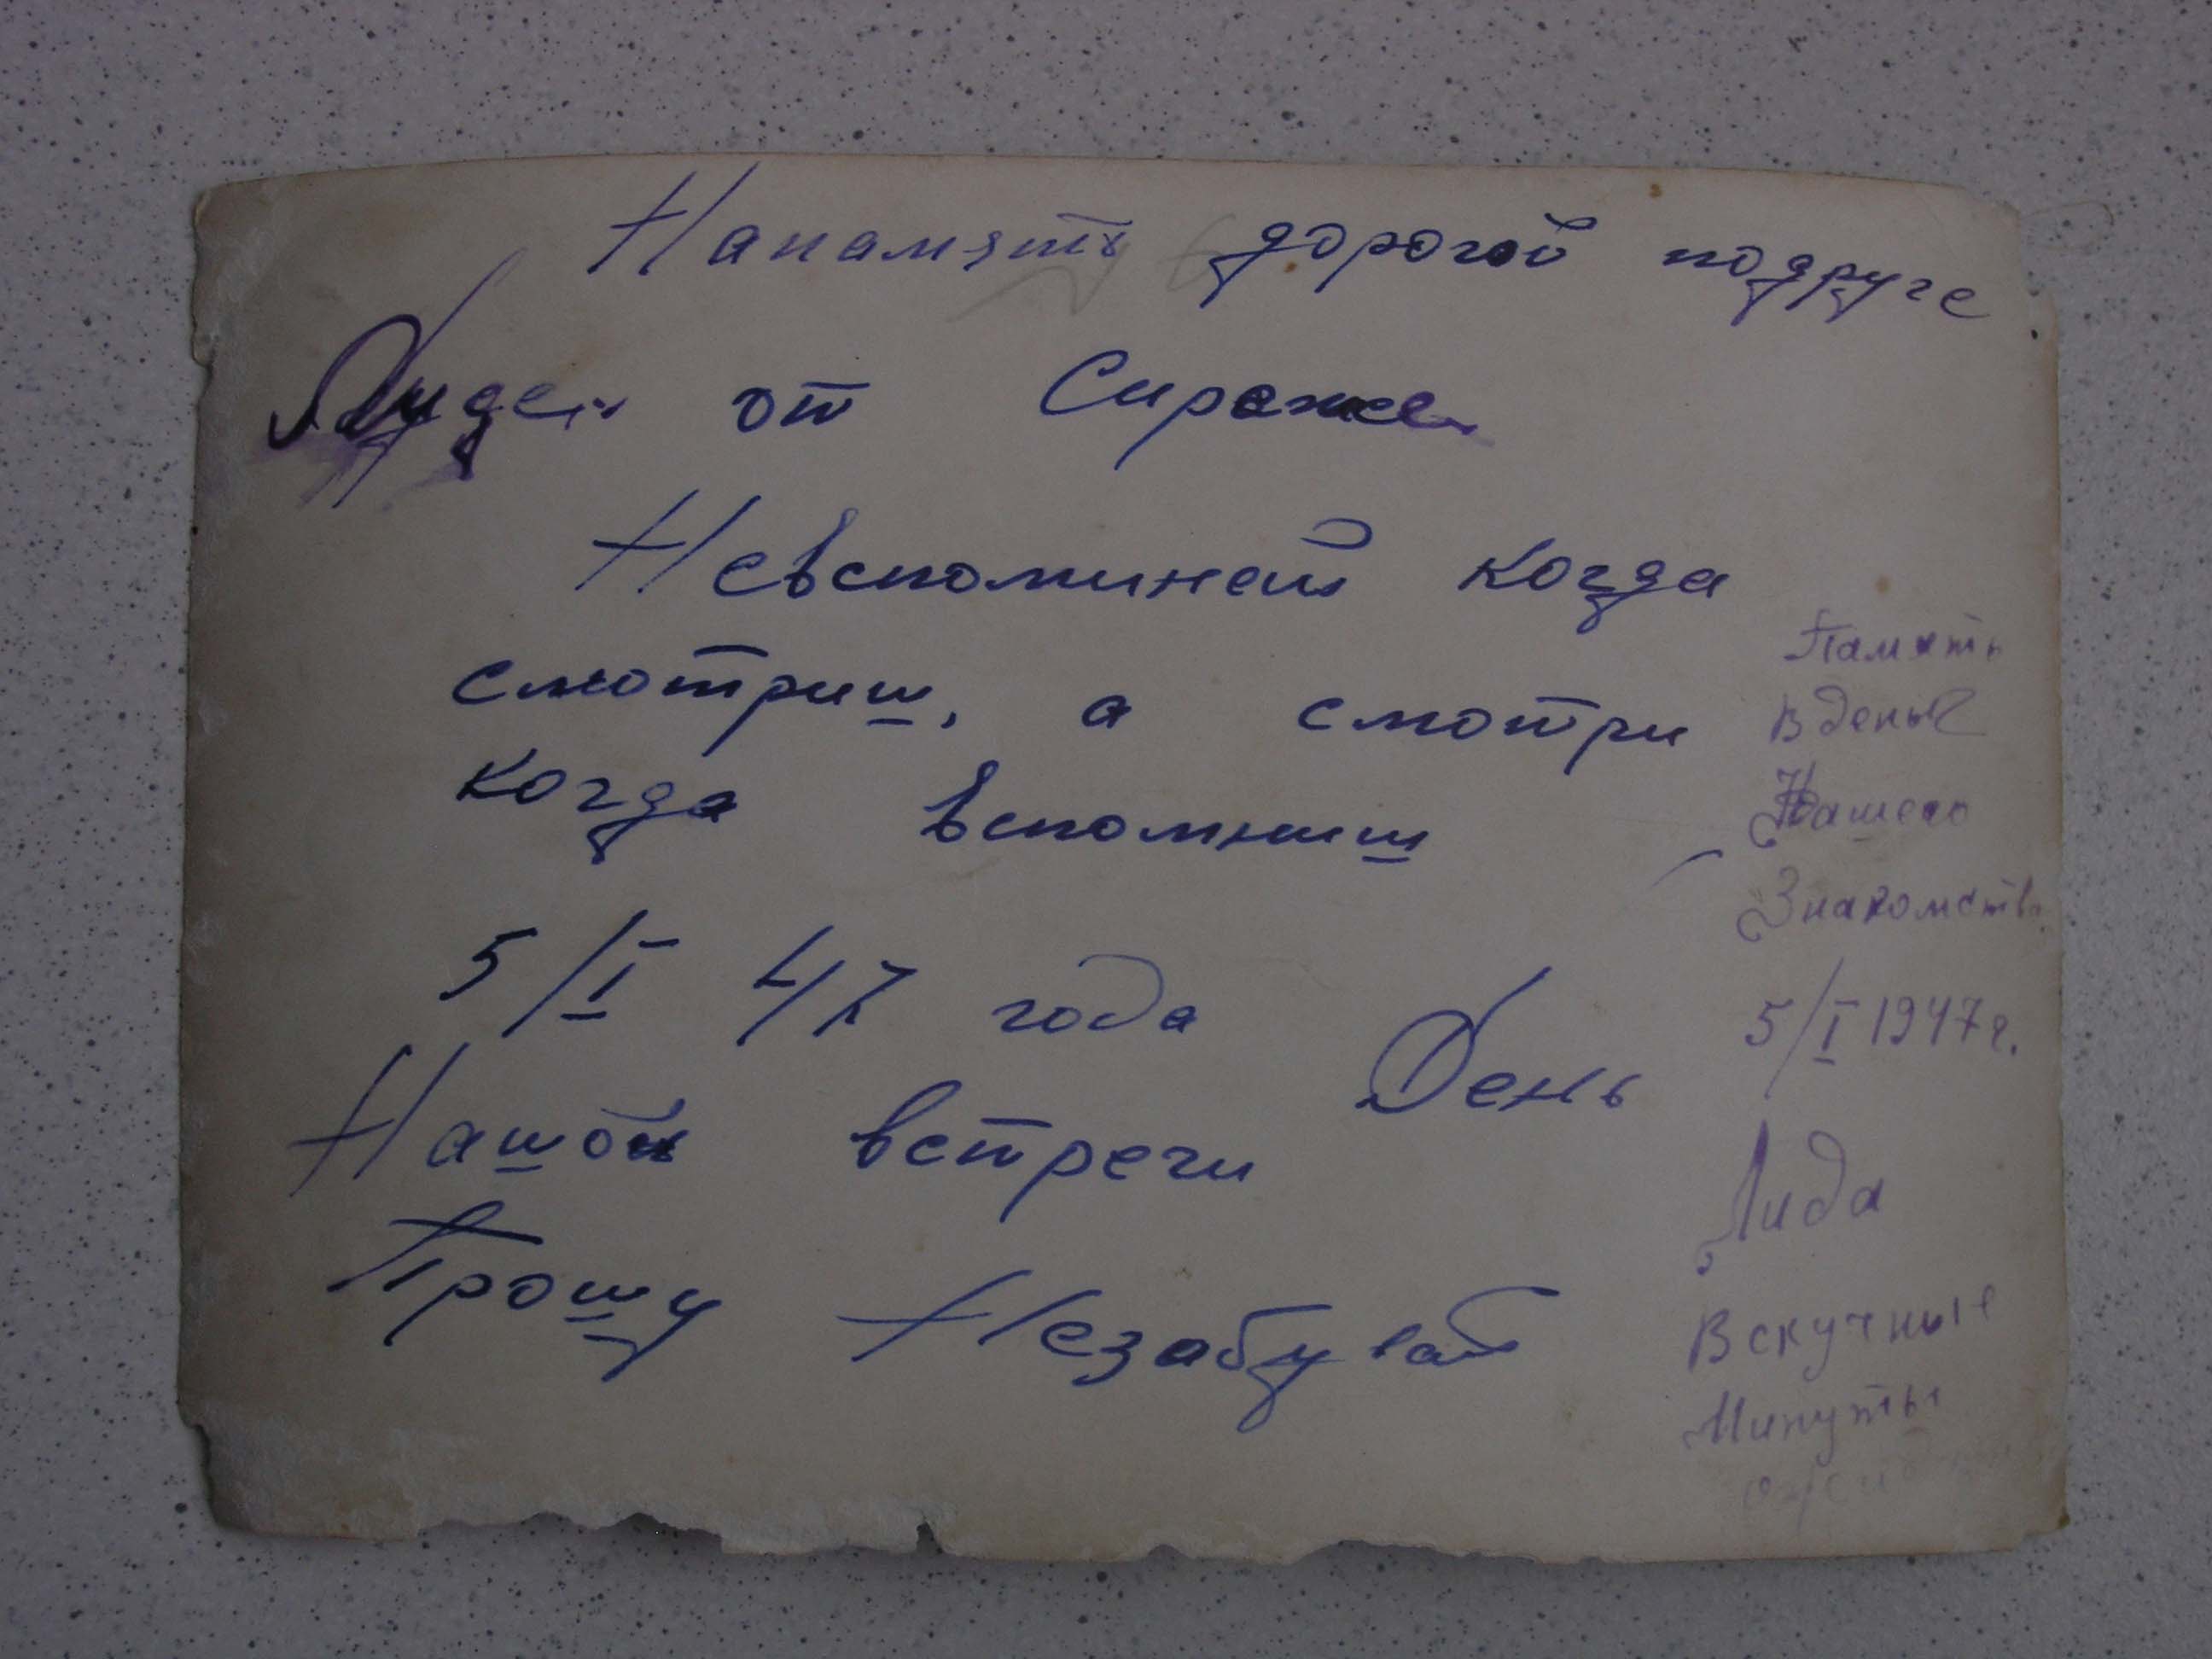 Напамять дорогой подруге
от
Невспоминай когда
смотриш, а смотри
когда вспомниш
5/I 47 года
День
Нашой встречи
Прошу Незабувай
Память
в день
Нашего
Знакомства
5/I 1947 г.
Лида
В скучные
Минуты